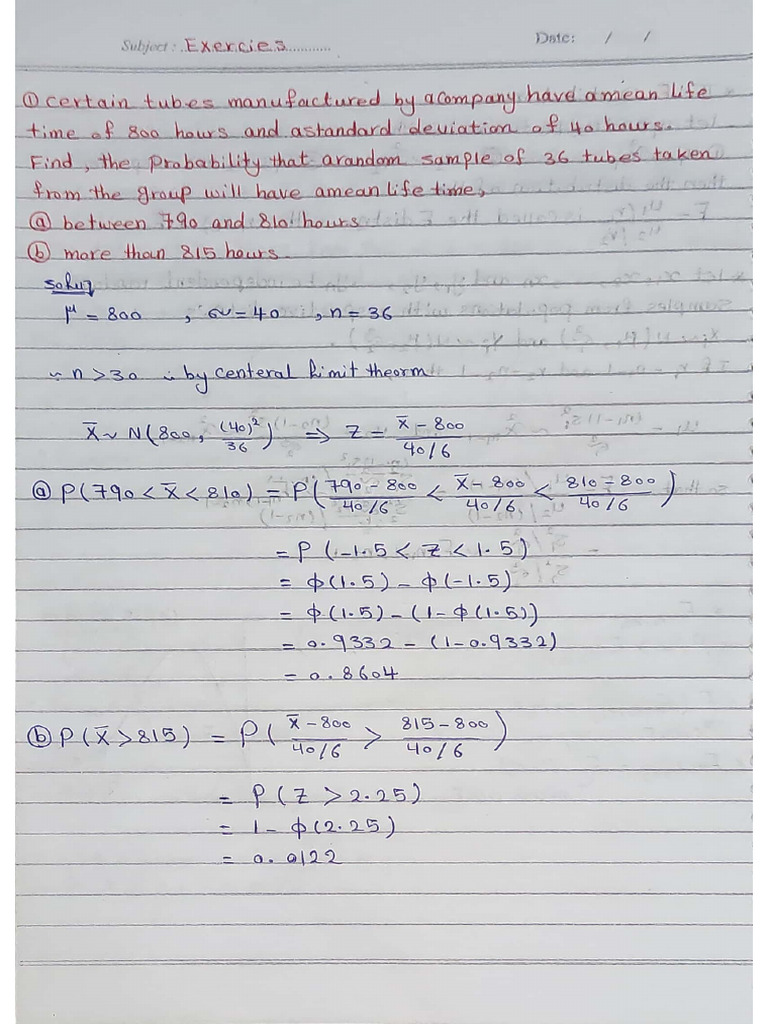 Subject: Exercies............ Date: / /
① certain tubes manufactured by acompany have amean life
time of 800 hours and astandard deviation of 40 hours.
Find, the probability that arandom sample of 36 tubes taken
from the group will have amean life time,
ⓐ between 790 and 810 hours
ⓑ more than 815 hours.
μ = 800 , σ = 40 , n = 36
∵ n > 30 ∴ by centeral limit theorm
X̄ ~ N(800, (40)²/36) ⇒ Z = (x̄ - 800)/(40/6)
ⓐ P(790 < X̄ < 810) = P((790 - 800)/(40/6) < (X̄ - 800)/(40/6) < (810 - 800)/(40/6))
= P(-1.5 < Z < 1.5)
= Φ(1.5) - Φ(-1.5)
= Φ(1.5) - (1 - Φ(1.5))
= 0.9332 - (1 - 0.9332)
= 0.8604
ⓑ P(X̄ > 815) = P((X̄ - 800)/(40/6) > (815 - 800)/(40/6))
= P(Z > 2.25)
= 1 - Φ(2.25)
= 0.0122